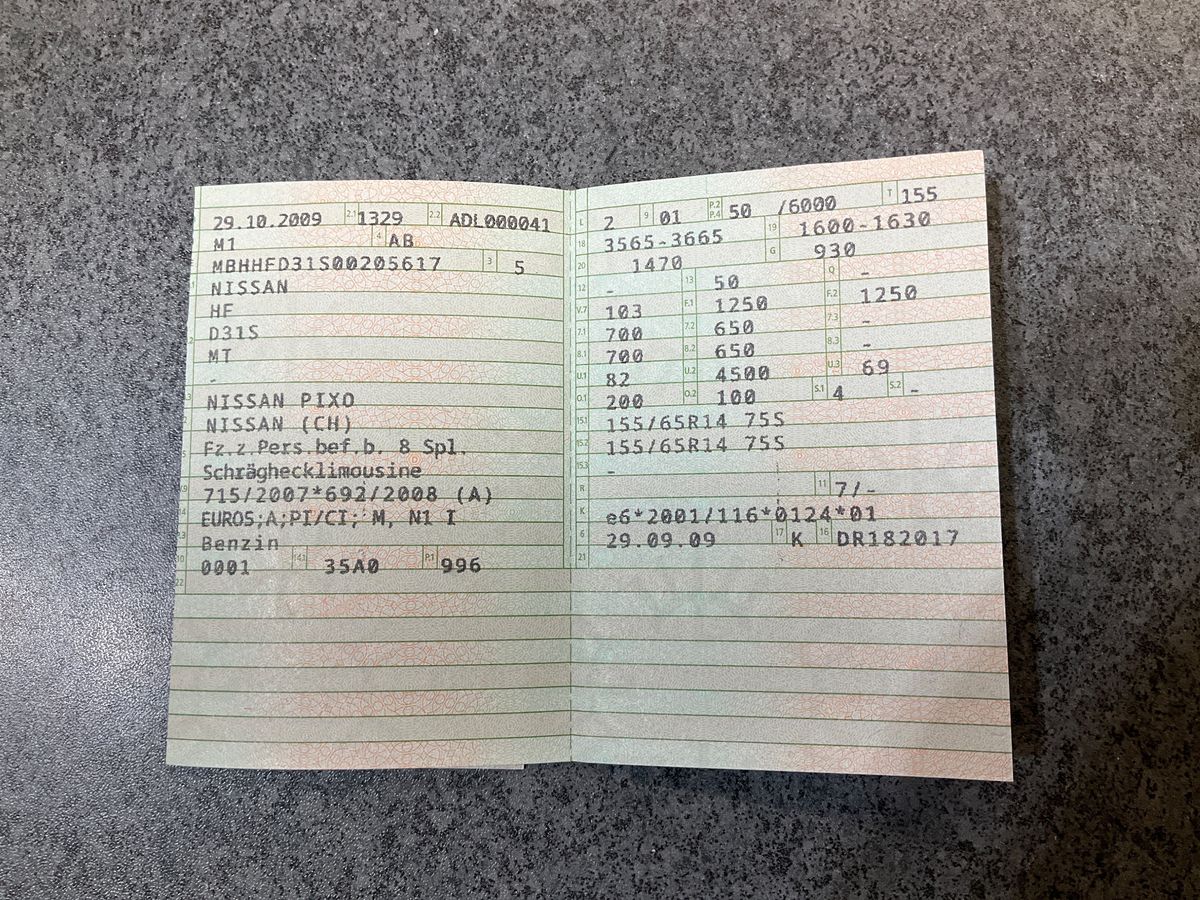 29.10.2009 2.1 1329 2.2 ADL000041
M1 4 AB
MBHHFD31S00205617 3 5
NISSAN
HF
D31S
MT
-
NISSAN PIXO
NISSAN (CH)
Fz.z.Pers.bef.b. 8 Spl.
Schräghecklimousine
715/2007*692/2008 (A)
EURO5;A;PI/CI; M, N1 I
Benzin
0001 14.1 35A0 P.1 996
22
L 2 9 01 P.2 P.4 50 /6000 T 155
18 3565-3665 19 1600-1630
20 1470 G 930
12 - 13 50 Q -
V.7 103 F.1 1250 F.2 1250
7.1 700 7.2 650 7.3 -
8.1 700 8.2 650 8.3 -
U.1 82 U.2 4500 U.3 69
O.1 200 O.2 100 S.1 4 S.2 -
15.1 155/65R14 75S
15.2 155/65R14 75S
15.3 -
R 11 7/-
K e6*2001/116*0124*01
6 29.09.09 17 K 16 DR182017
21